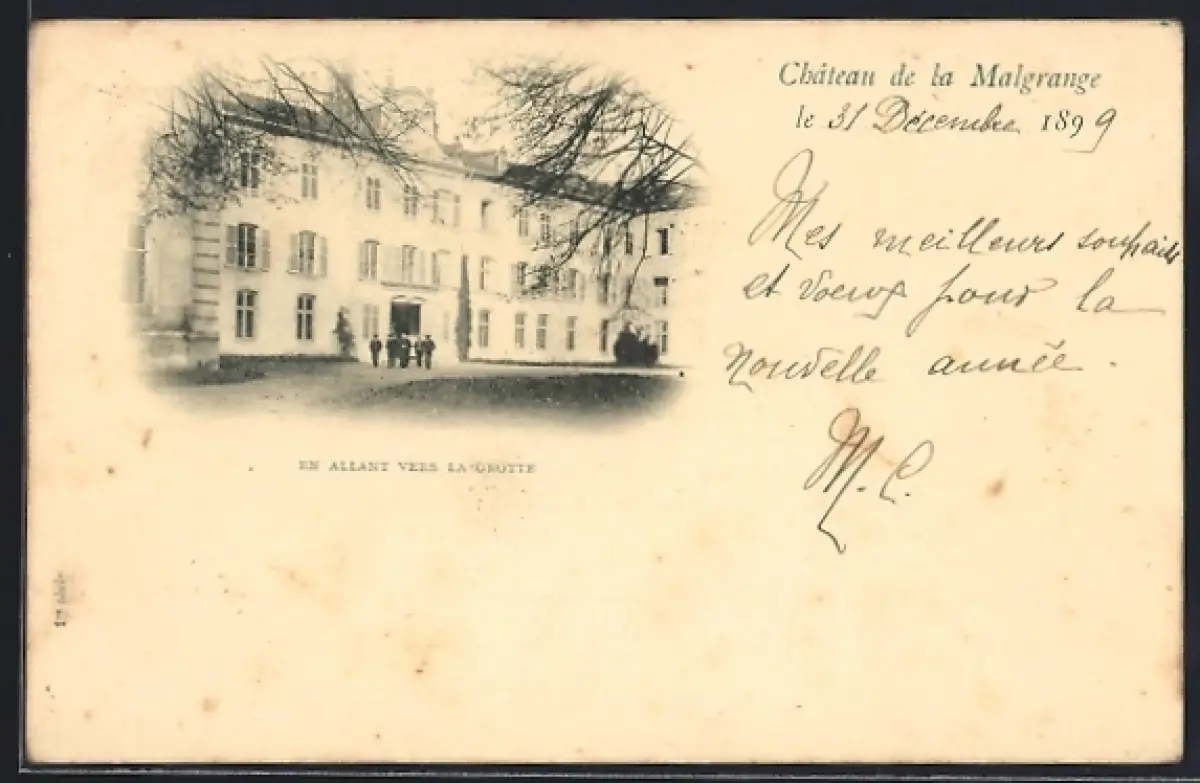 Château de la Malgrange
le 31 Décembre 1899
Mes meilleurs souhaits
et voeux pour la
nouvelle année.
M. C.
EN ALLANT VERS LA GROTTE